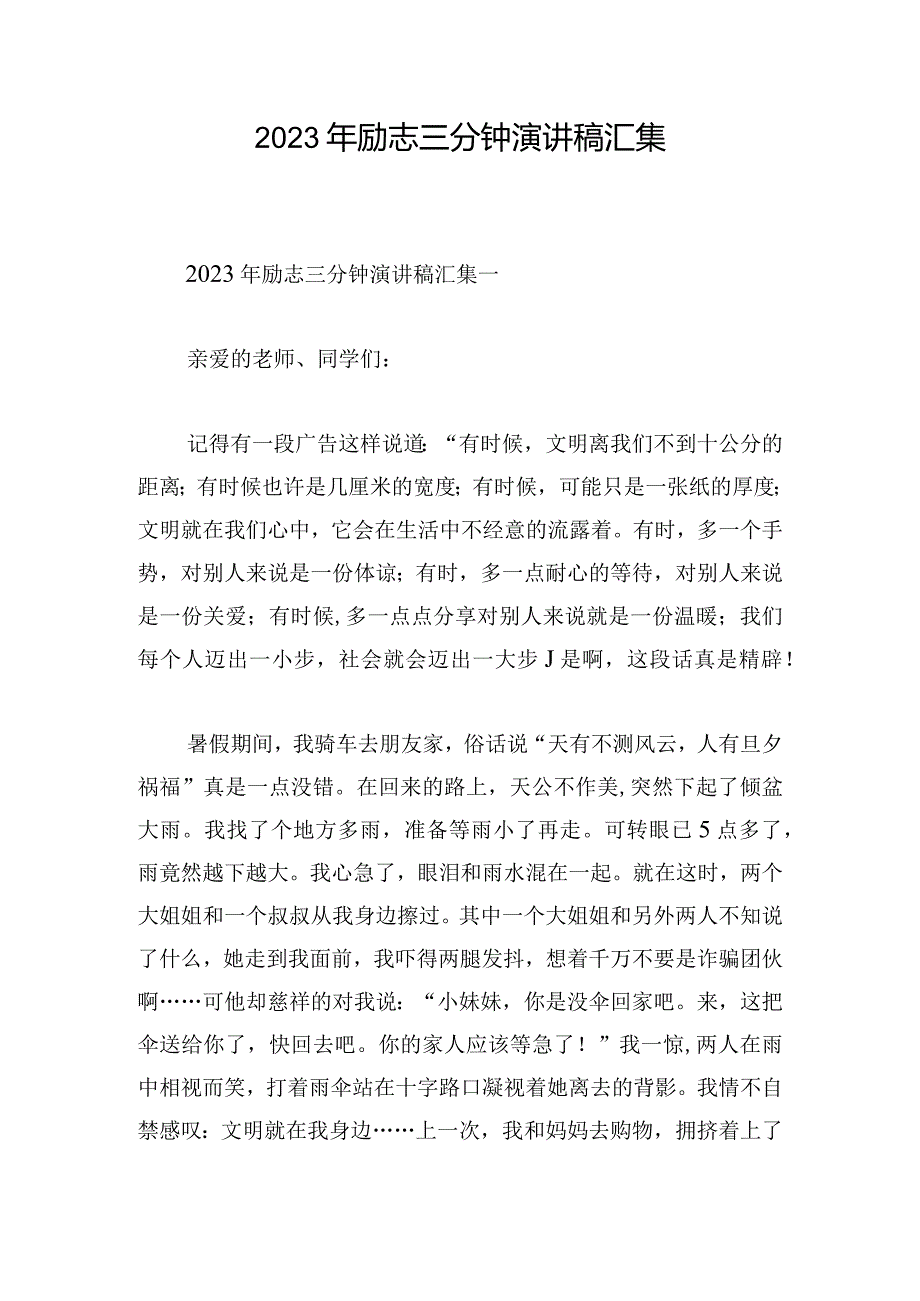 2023年励志三分钟演讲稿汇集
2023年励志三分钟演讲稿汇集一
亲爱的老师、同学们：
记得有一段广告这样说道：“有时候，文明离我们不到十公分的
距离；有时候也许是几厘米的宽度；有时候，可能只是一张纸的厚度；
文明就在我们心中，它会在生活中不经意的流露着。有时，多一个手
势，对别人来说是一份体谅；有时，多一点耐心的等待，对别人来说
是一份关爱；有时候,多一点点分享对别人来说就是一份温暖；我们
每个人迈出一小步，社会就会迈出一大步J是啊，这段话真是精辟！
暑假期间，我骑车去朋友家，俗话说“天有不测风云，人有旦夕
祸福”真是一点没错。在回来的路上，天公不作美,突然下起了倾盆
大雨。我找了个地方多雨，准备等雨小了再走。可转眼已5点多了，
雨竟然越下越大。我心急了，眼泪和雨水混在一起。就在这时，两个
大姐姐和一个叔叔从我身边擦过。其中一个大姐姐和另外两人不知说
了什么，她走到我面前，我吓得两腿发抖，想着千万不要是诈骗团伙
啊……可他却慈祥的对我说：“小妹妹，你是没伞回家吧。来，这把
伞送给你了，快回去吧。你的家人应该等急了！”我一惊,两人在雨
中相视而笑，打着雨伞站在十字路口凝视着她离去的背影。我情不自
禁感叹：文明就在我身边……上一次，我和妈妈去购物，拥挤着上了